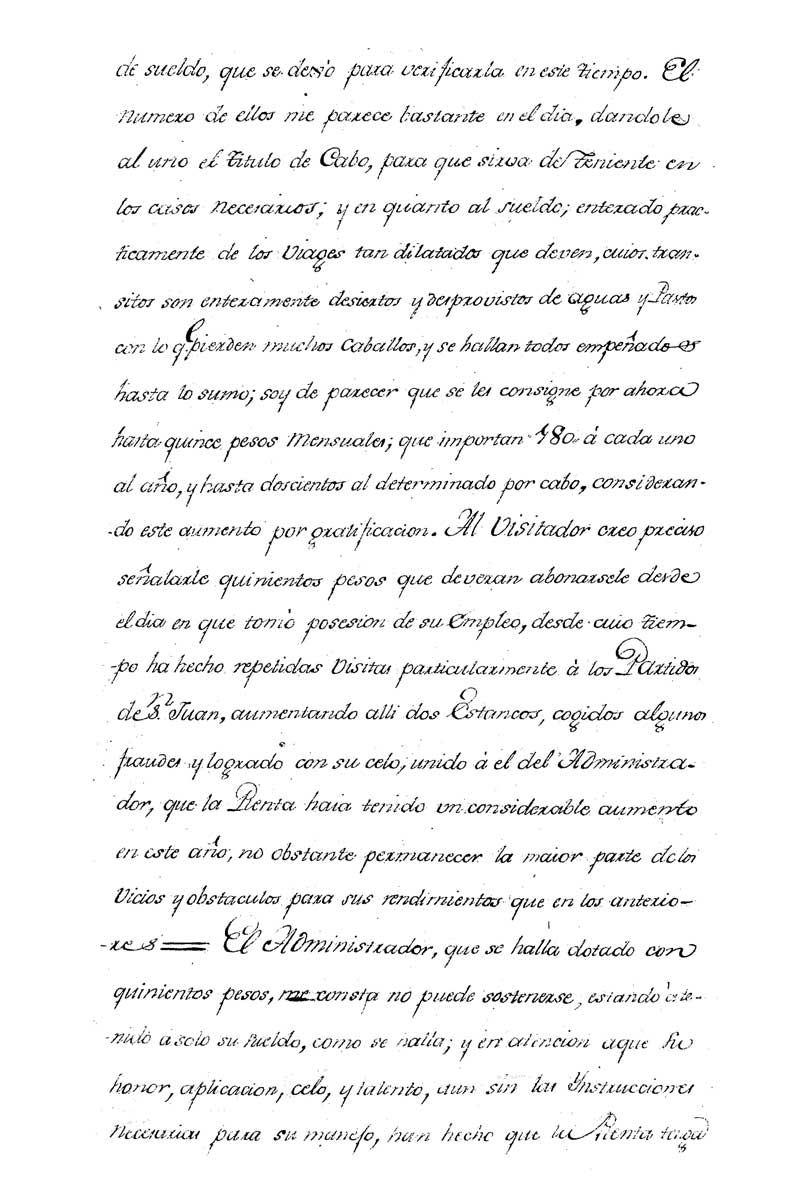 de sueldo, que se desvò para verificarla en este tiempo. El
numero de ellos me parece bastante en el dia, dandole
al uno el titulo de Cabo, para que sirva de Teniente en
los casos necesarios; y en quanto al sueldo; enterado prac-
ticamente de los Viages tan dilatados que deven, cuios tran-
sitos son enteramente desiertos y desprovistos de aguas y Pastos
con lo q.e pierden muchos Caballos, y se hallan todos empeñados
hasta lo sumo; soy de parecer que se les consigne por ahora
hasta quince pesos Mensuales; que importan 180. à cada uno
al año, y hasta doscientos al determinado por cabo, consideran-
-do este aumento por gratificacion. Al Visitador creo preciso
señalarle quinientos pesos que deveran abonarsele desde
el dia en que tomò posesion de su Empleo, desde cuio tiem-
-po ha hecho repetidas Visitas particularmente à los Partidos
de S.n Juan, aumentando alli dos Estancos, cogidos algunos
fraudes y logrado con su celo, unido à el del Administra-
dor, que la Renta haia tenido un considerable aumento
en este año, no obstante permanecer la maior parte de los
Vicios y obstaculos para sus rendimientos que en los anterio-
-res = El Administrador, que se halla dotado con
quinientos pesos, me consta no puede sostenerse, estando ate-
-nido a solo su sueldo, como se halla; y en atencion a que su
honor, aplicacion, celo, y talento, aun sin las Instrucciones
necesarias para su manejo, han hecho que la Renta tenga